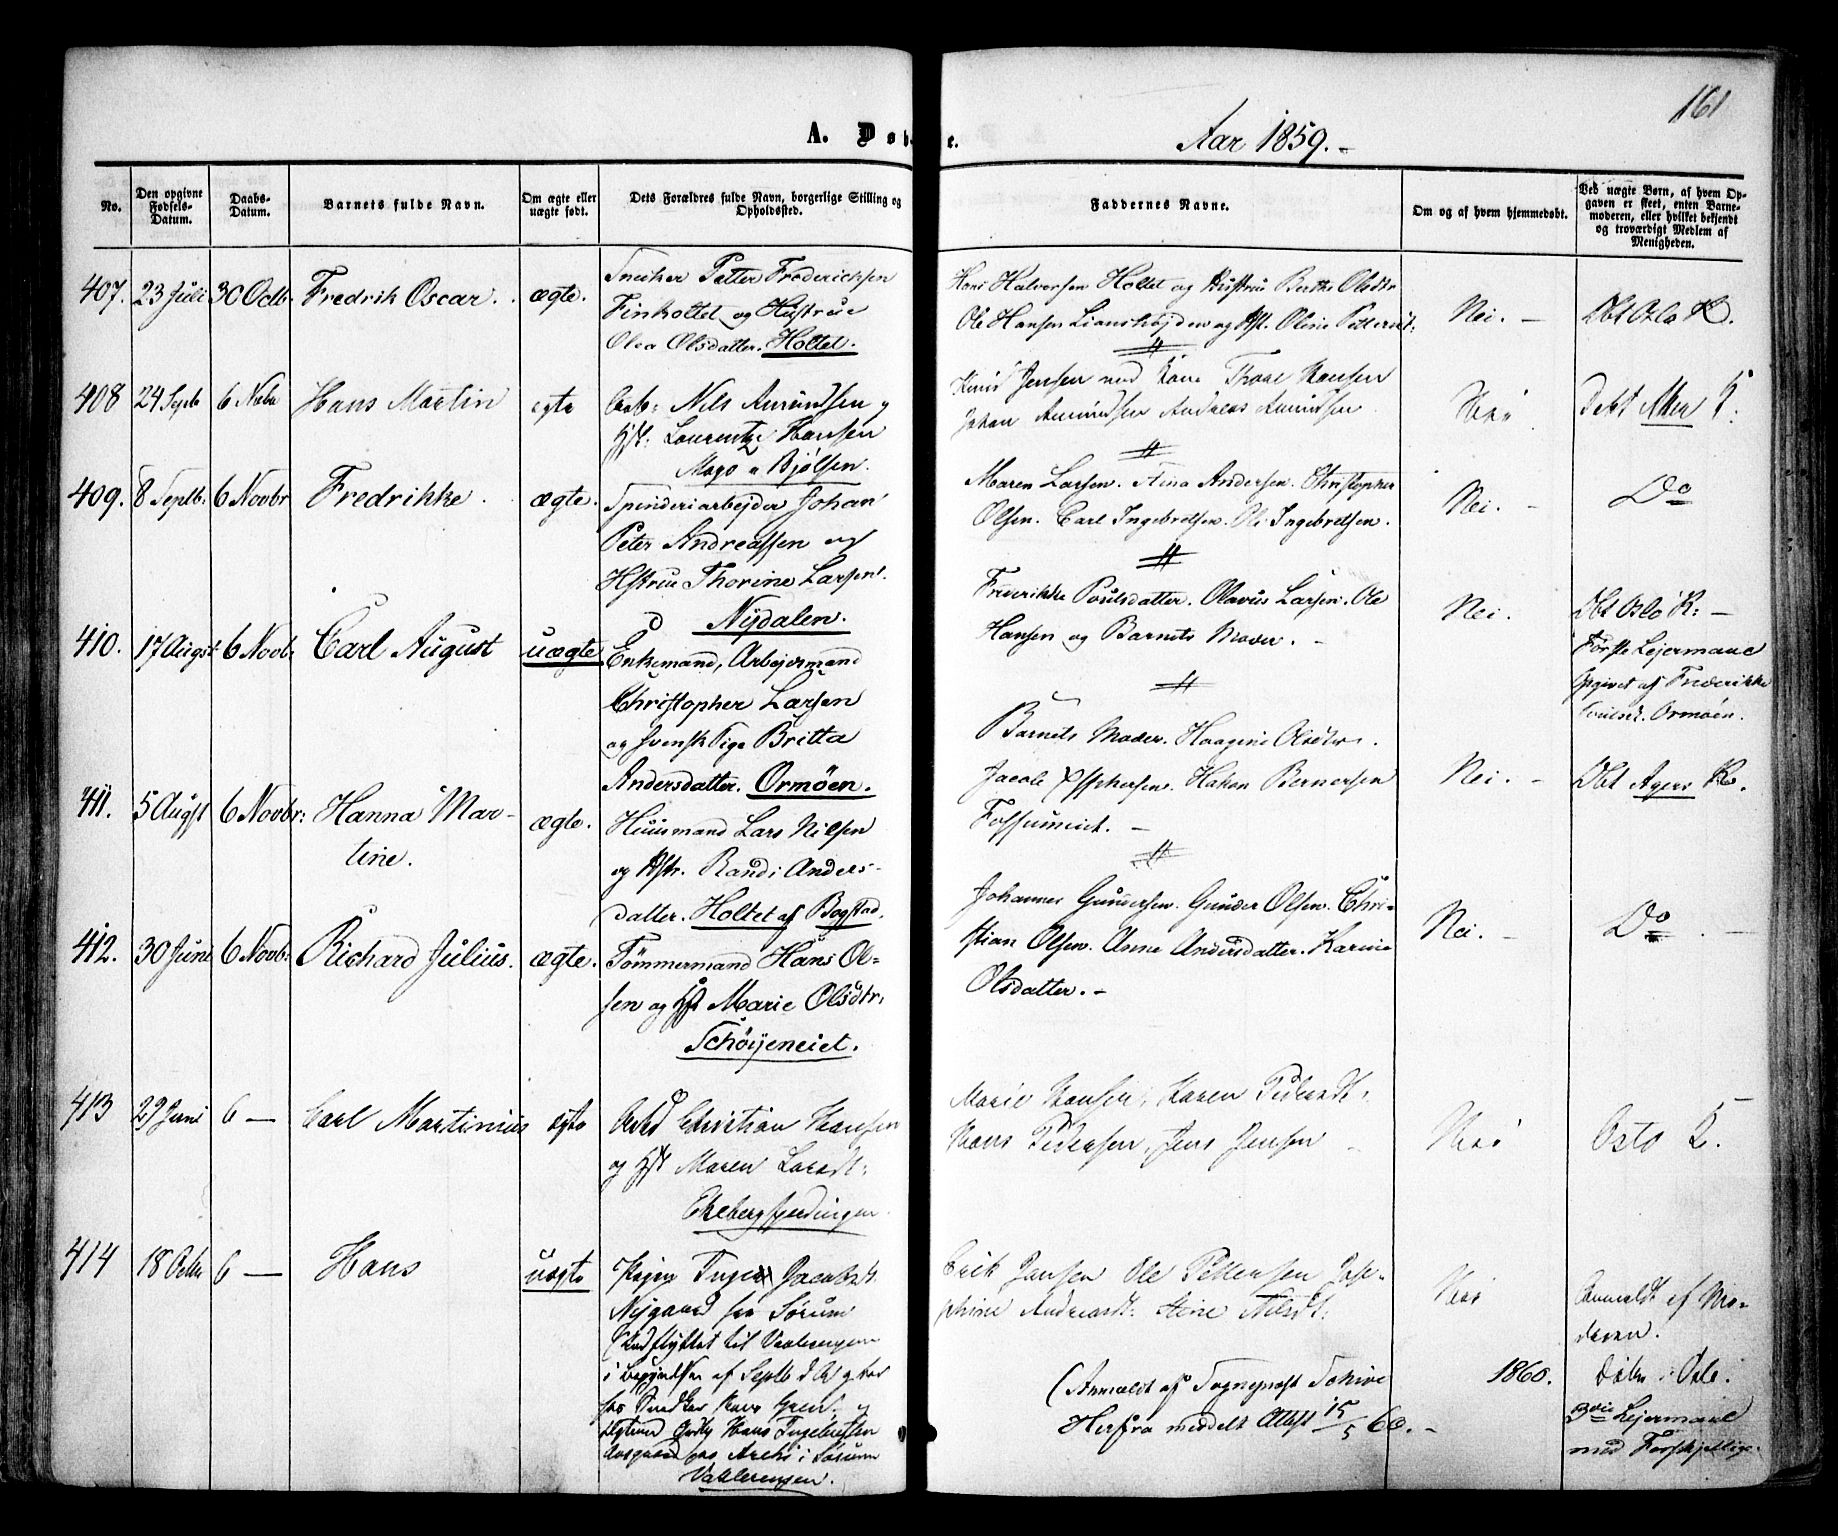 161
A. Døbte.
Aar 1859.
No.
Den opgivne Fødsels-Datum.
Daabs-Datum.
Barnets fulde Navn.
Om ægte eller uægte født.
Dets Forældres fulde Navn, borgerlige Stilling og Opholdsted.
Faddernes Navne.
Om og af hvem hjemmedøbt.
Ved uægte Børn, af hvem Opgaven er skeet, enten Barnemoderen, eller hvilket bekjendt og troværdigt Medlem af Menigheden.
407. 23 Juli 30 Octb. Fredrik Oscar. ægte.
Sneker Petter Frederichsen
Finholtet og Hustrue
Olea Olsdatter. Holtet.
Hans Halvorsen Holtet og Hustrue Berthe Olsdtr
Ole Hansen Lianshøjden og Hst. Oline
Nei. –
Dbt Oslo K.
408 24 Septb 6 Novbr Hans Martin ægte
Arb: Nils Amundsen
Hst: Laurentze Hansen
Bjølsen.
Knud Jensen med Kone Hansen
Johan Amundsen Andreas Amundsen
Nei
Døbt Aker K.
409. 8 Septb. 6 Novbr Fredrikke. ægte.
Spinderiarbejder Johan
Peter Andreassen og
Hstrue Thorine Larsen.
Nydalen.
Maren Larsen. Andersen. Christopher
Olsen. Carl Ingebretsen. Ole Ingebretsen.
Nei. –
Do
410. 17 August 6 Novb: Carl August uægte
Enkemand, Arbejdsmand
Christopher Larsen
og svensk Pige Britta
Andersdatter. Ormøen.
Frederikke Poulsdatter. Olavus Larsen. Ole
Hansen og Barnets Moder. –
Nei.
Dbt Oslo K: –
Første Lejermaal
Opgivet af Frederikke
Poulsd. Ormøen.
411. 5 Augst 6 Novbr: Hanna Mar-
tine. ægte.
Huusmand Lars Nilsen
og Hstr. Randi Anders-
datter. Holtet af Bogstad.
Barnets Moder. Haagine Olsdtr.
Jacob Hakon Bernersen
Fossumeiet. –
Nei. –
Dbt Agers K.
412. 30 Juni 6 Novb: Richard Julius. ægte.
Tømmermand Hans Ol-
sen og Hst Marie Olsdtr.
Schøijeneiet.
Johannes Gundersen. Gunder Olsen. Chri-
stian Olsen. Anne Andersdatter. Karine
Olsdatter. –
Nei. –
Do –
413 29 Juni 6 — Carl Martinius ægte
Arbd Christian Hansen
og Hst Maren Larsdt:
Ekebergfjerdingen
Marie Hansen, Karen Pedersdt:
Hans Pedersen, Jens Jensen –
Nei
Oslo K.
414 18 Octbr 6 — Hans uægte
Pigen Inger Jacobsdt.
Nygaard fra Sørum
Indflyttet til Vaalerengen
i Begyndelsen af Septb
Hans Ingebretsen
i Sørum
Vaalerengen.
Erik Jansen Ole Pettersen Jose-
phine Andreasdt. Stine Nilsdt:
Nei
Anmeldt af Mo-
deren.
(Anmeldt af Sognepræst Schive 1860.
Herfra meddelt Attest 15/5 60. –
Døbt i Oslo.
3die Lejermaal
med Forskjellige.